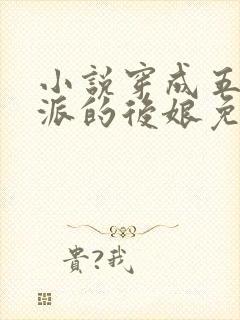 小說穿成五
派的後娘免
貴?我